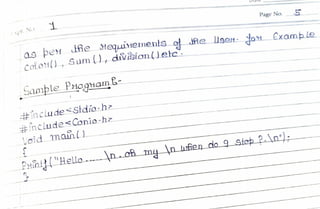 1
Page No. 5
as per the requirements of the User. for Example
color(), sum(), division() etc.
Sample Program:-
#include<Stdio.h>
#include<Conio.h>
void main()
{
Printf("Hello..... \n. oh my \n when do 9 stop ?.\n");
}